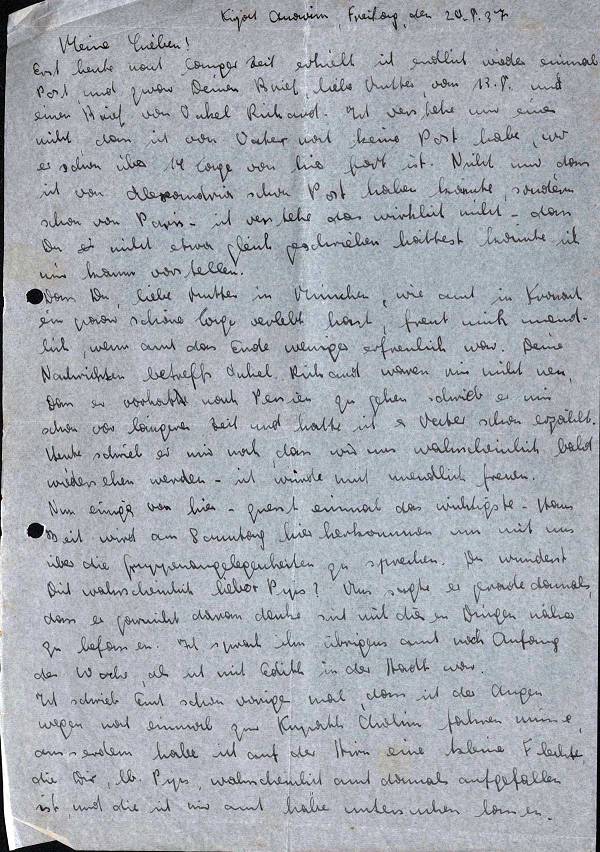 Kirjat Anavim, Freitag, den 20.8.37
Meine Lieben!
Erst heute nach langer Zeit erhielt ich endlich wieder einmal
Post und zwar Deinen Brief, liebe Mutter vom 13.8. und
einen Brief von Onkel Richard. Ich verstehe nur eines
nicht, dass ich von Vater noch keine Post habe, wo
er schon über 14 Tage von hier fort ist. Nicht nur dass
ich von Alexandria schon Post haben könnte, sondern
schon von Paris - ich verstehe das wirklich nicht - dass
Du es nicht etwa gleich geschrieben hättest könnte ich
mir kaum vorstellen.
Dass Du, liebe Mutter in München, wie auch in
ein paar schöne Tage verlebt hast, freut mich unend-
lich, wenn auch das Ende weniger erfreulich war. Deine
Nachrichten betreffs Onkel Richard waren mir nicht neu,
Dass er vorhatte nach Persien zu gehen schrieb er mir
schon vor längerer Zeit und hatte ich es Vater schon erzählt.
Heute schrieb er mir noch, dass wir uns wahrscheinlich bald
wiedersehen werden - ich würde mich unendlich freuen.
Nun einiges von hier - zuerst einmal das wichtigste - Hans
Beit wird am Sonntag hierherkommen um mit uns
über die Gruppenangelegenheiten zu sprechen. Du wunderst
Dich wahrscheinlich lieber Pyps? Uns sagte er gerade damals,
dass er garnicht daran denke sich mit diesen Dingen näher
zu befassen. Ich sprach ihn übrigens auch noch Anfang
der Woche, als ich mit Edith in der Stadt war.
Ich schrieb Euch schon voriges mal, dass ich der Augen
wegen noch einmal zur Kupath Cholim fahren müsse,
ausserdem habe ich auf der Stirn eine kleine Flechte,
die Dir, lb. Pyps, wahrscheinlich auch damals aufgefallen
ist und die ich mir auch habe untersuchen lassen.